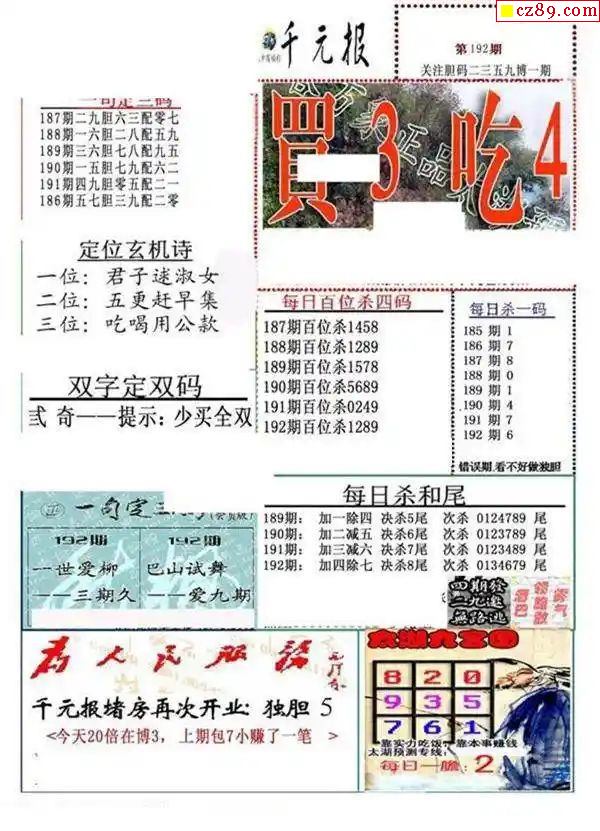 cz89.com
千元报
第192期
关注胆码二三五九博一期
一句定三码
187期二九胆六三配零七
188期一六胆二八配五九
189期三六胆七八配九五
190期一五胆七九配六二
191期四九胆零五配二一
186期五七胆三九配二零
買3吃4
定位玄机诗
一位：君子逑淑女
二位：五更赶早集
三位：吃喝用公款
每日百位杀四码
187期百位杀1458
188期百位杀1289
189期百位杀1578
190期百位杀5689
191期百位杀0249
192期百位杀1289
每日杀一码
185 期 1
186 期 7
187 期 8
188 期 0
189 期 1
190 期 4
191 期 7
192 期 6
错误期,看不好做独胆
双字定双码
弍 奇——提示：少买全双
每日杀和尾
189期： 加一除四 决杀5尾 次杀 0124789 尾
190期： 加二减五 决杀6尾 次杀 0123789 尾
191期： 加三减六 决杀7尾 次杀 0123489 尾
192期： 加四除七 决杀8尾 次杀 0134679 尾
正 一句定三
192期
192期
一世爱柳
巴山试舞
——三期久
——爱九期
四期發
二九遮
無路逃
为人民服务
千元报堵房再次开业: 独胆 5
<今天20倍在博3，上期包7小赚了一笔 >
太湖九宫图
8 2 0
9 3 5
7 6 1
靠实力吃饭 靠本事赚钱
太湖预测专线:
每日一胆: 2